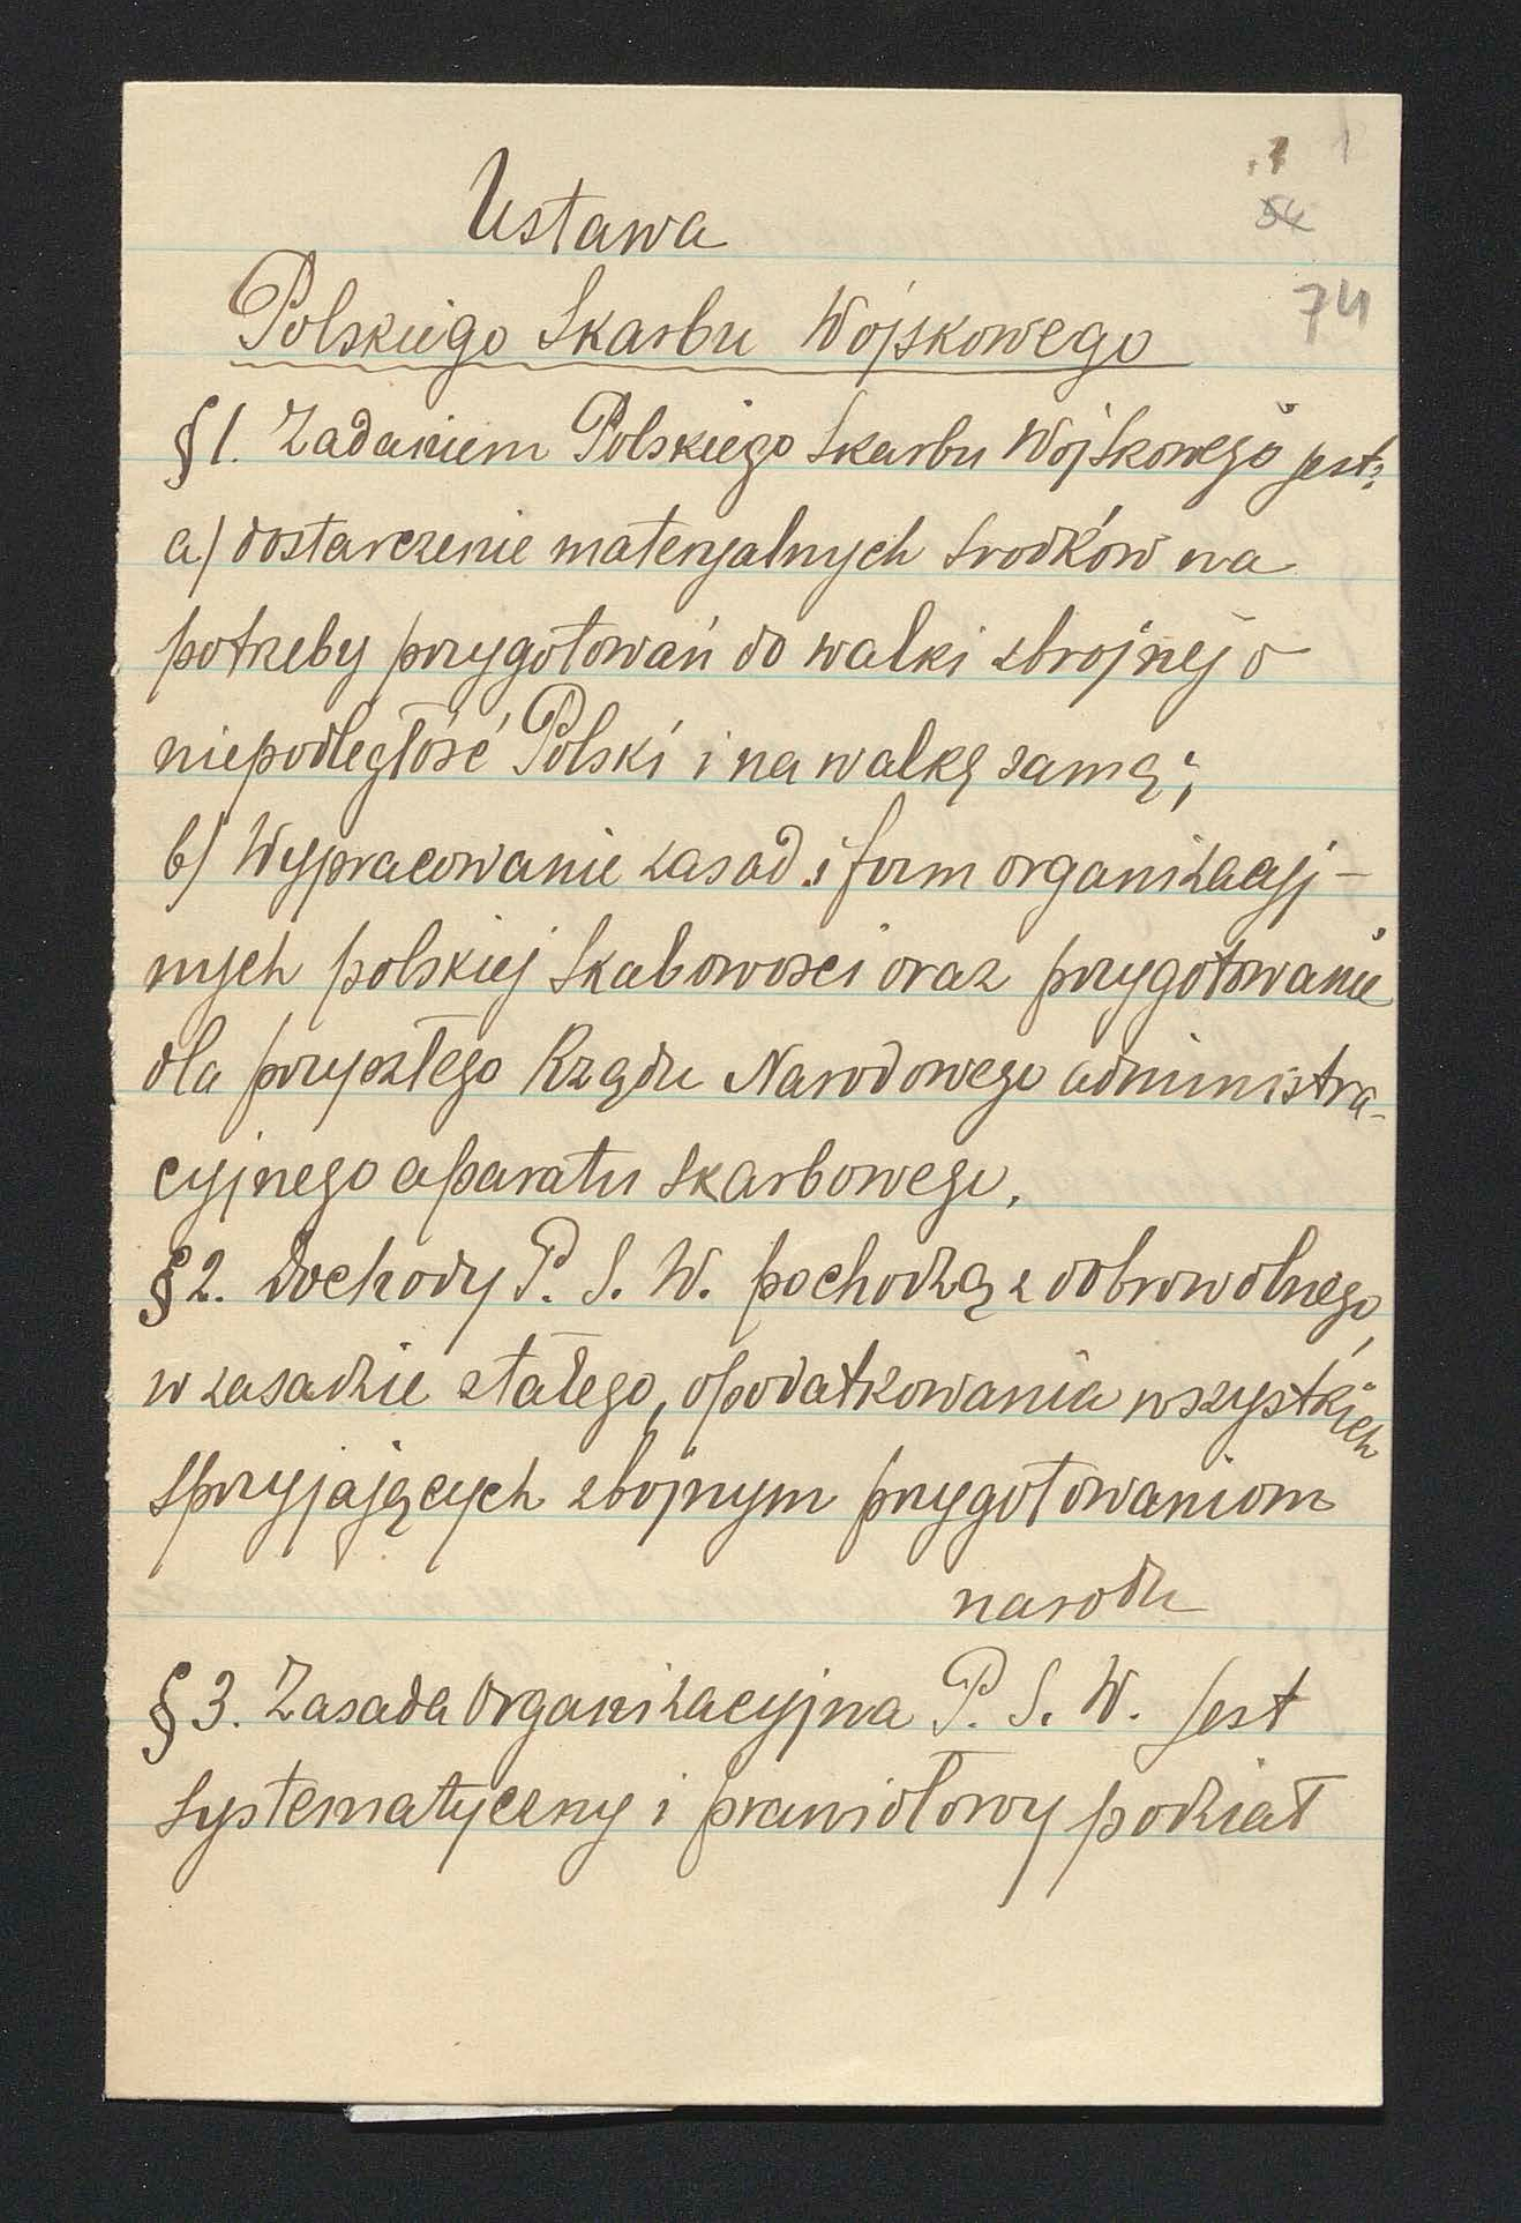 1
54
74
Ustawa
Polskiego Skarbu Wojskowego
§ 1. Zadaniem Polskiego Skarbu Wojskowego jest:
a) dostarczenie materyalnych środków na
potrzeby przygotowań do walki zbrojnej o
niepodległość Polski i na walkę samą;
b) Wypracowanie zasad i form organizacyj-
nych polskiej skabowości oraz przygotowanie
dla przyszłego Rządu Narodowego administra-
cyjnego aparatu skarbowego.
§ 2. Dochody P. S. W. pochodzą z dobrowolnego,
w zasadzie stałego, opodatkowania wszystkich
sprzyjających zbojnym przygotowaniom
narodu
§ 3. Zasada organizacyjna P. S. W. jest
systematyczny i prawidłowy podział